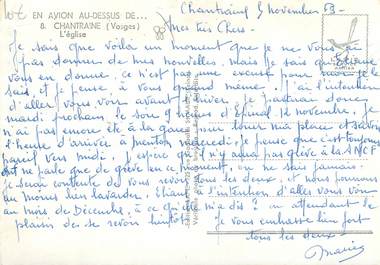 EN AVION AU-DESSUS DE...
8. CHANTRAINE (Vosges)
L'église
Chantraine 5 novembre 53 -
Mes très Chers -
Je sais que voilà un moment que je ne vous ai
pas donner de mes nouvelles. Mais je sais que Éliane
vous en donne, ce n'est pas une excuse pour moi je le
sais, et je pense, à vous quand même. J'ai l'intention
d'aller vous voir avant l'hiver. Je partirai donc
mardi prochain le soir 9 heures d'Epinal 10 novembre, je
n'ai pas encore été à la gare pour louer ma place et savoir
l'heure d'arrivée à menton mercredi, je pense que c'est toujours
pareil vers midi. J'espère qu'il n'y aura pas grève à la SNCF
on ne parle que de grève en ce moment, on ne sais jamais.
Je serai contente de vous revoir tous les deux, et nous pourrons
au moins bien bavarder. Éliane a l'intention d'aller vous voir
au mois de Décembre, à ce qu'elle m'a dit? en attendant le
plaisir de se revoir bientôt je vous embrasse bien fort
tous les deux.
Marie